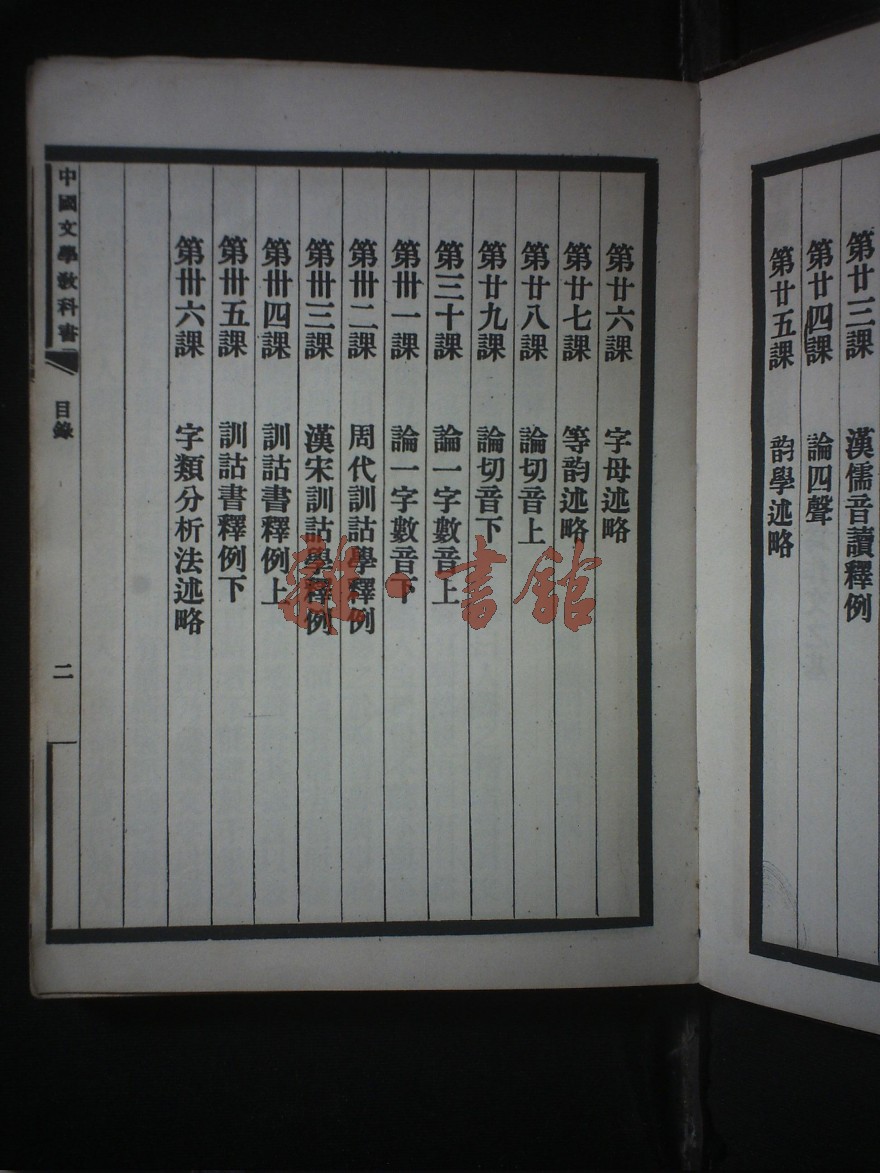 第廿三課 漢儒音讀釋例
第廿四課 論四聲
第廿五課 韵學述略
第廿六課 字母述略
第廿七課 等韵述略
第廿八課 論切音上
第廿九課 論切音下
第三十課 論一字數音上
第卅一課 論一字數音下
第卅二課 周代訓詁學釋例
第卅三課 漢宋訓詁學釋例
第卅四課 訓詁書釋例上
第卅五課 訓詁書釋例下
第卅六課 字類分析法述略
中國文學教科書一 目錄 二
雜·書館